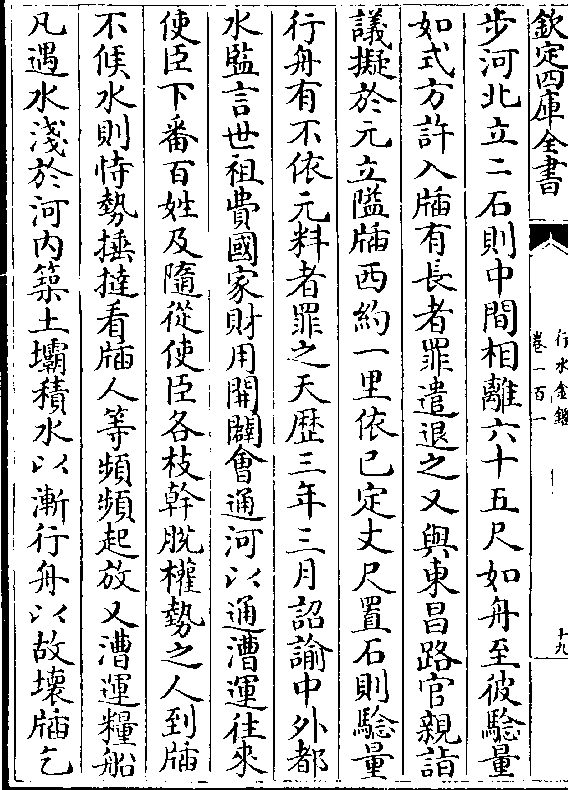 欽定四庫全書
行水金鑑
卷一百一
十九
步河北立二石則中間相離六十五尺如舟至彼驗量
如式方許入牐有長者罪遣退之又與東昌路官親詣
議擬於元立隘牐西約一里依已定丈尺置石則驗量
行舟有不依元料者罪之天歴三年三月詔諭中外都
水監言世祖費國家財用開闢會通河以通漕運往來
使臣下番百姓及隨從使臣各枝幹脫權勢之人到牐
不候水則恃勢捶撻看牐人等頻頻起放又漕運糧船
凡遇水淺於河内築土壩積水以漸行舟以故壞牐乞